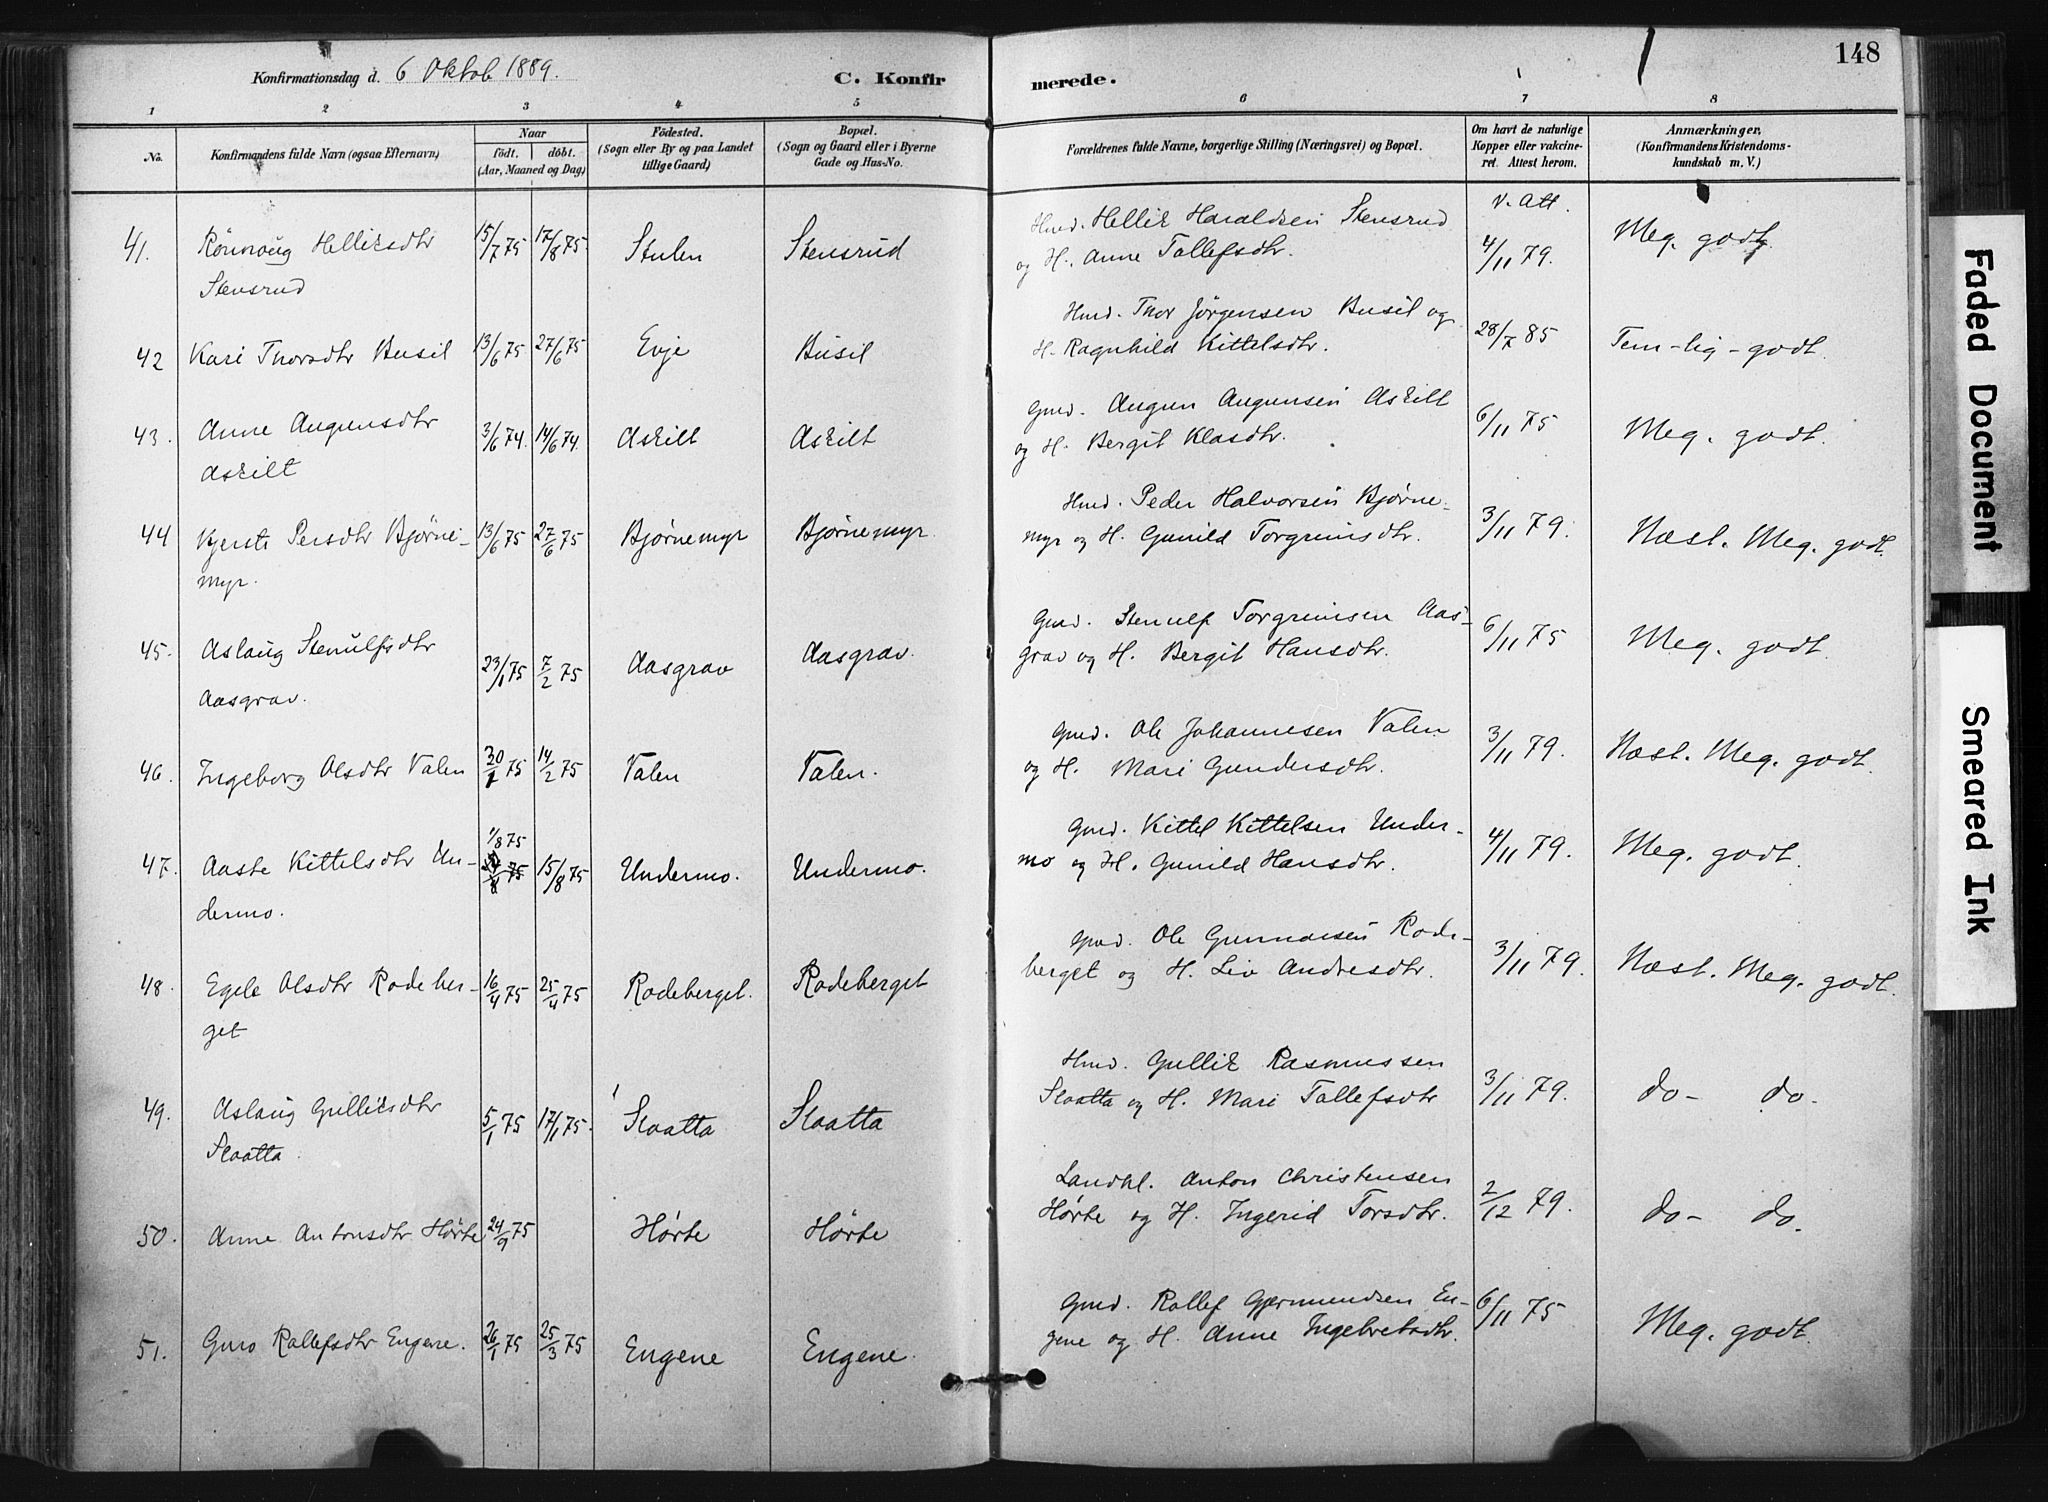 Konfirmationsdag d. 6 Oktob 1889.
C. Konfir
merede.
148
1 2 3 4 5 6 7 8
No.
Konfirmandens fulde Navn (ogsaa Efternavn).
Naar
født. døbt.
(Aar, Maaned og Dag)
Fødested.
(Sogn eller By og paa Landet
tillige Gaard)
Bopæl.
(Sogn og Gaard eller i Byerne
Gade og Hus-No.
Forældrenes fulde Navne, borgerlige Stilling (Næringsvei) og Bopæl.
Om havt de naturlige
Kopper eller vakcine-
ret. Attest herom.
Anmærkninger.
(Konfirmandens Kristendoms-
kundskab m. V.)
41. Rönnaug Helliksdtr 15/7 75 17/8 75. Stulen Stensrud Hmd. Hellik Haraldsen Stensrud v. Att. Meg. godt
Stensrud og H. Anne Tollefsdtr. 4/11 79.
42 Kari Thorsdtr Busil 13/6 75 27/6 75 Evje Busil Hmd. Thor Jörgensen Busil og 28/7 85 Tem-lig-godt.
H. Ragnhild Kittelsdtr.
43. Anne Augunsdtr 3/6 74. 14/6 74. Askilt Askilt Gmd. Augun Augunsen Askilt 6/11 75 Meg. godt.
Askilt og H. Bergit Klasdtr.
44 Kjersti Persdtr Bjørne- 13/6 75 27/6 75 Bjørnemyr Bjørnemyr. Hmd. Peder Halvorsen Bjørne- 3/11 79. Næst. Meg. godt.
myr. myr og H. Gunild Torgrimsdtr.
45. Aslaug Stenulfsdtr 23/1 75 7/2 75 Aasgrav Aasgrav. Gmd. Stenulf Torgrimsen Aas- 6/11 75 Meg. godt.
Aasgrav. grav og H. Bergit Hansdtr.
46. Ingeborg Olsdtr Valen 30/1 75 14/2 75 Valen Valen. Gmd. Ole Johannesen Valen 3/11 79. Næst. Meg. godt.
og H. Mari Gundersdtr.
1/8 75
47. Aaste Kittelsdtr Un- 15/8 75 Undermo. Undermo. Gmd. Kittel Kittelsen Under- 4/11 79. Meg. godt.
dermo. mo og H. Gunild Hansdtr.
48. Egele Olsdtr Rodeber- 16/4 75 25/4 75 Rodeberget. Rodeberget Gmd. Ole Gunnarsen Rode- 3/11 79. Næst. Meg. godt.
get berget og H. Liv Andresdtr.
49. Aslaug Gulliksdtr 5/1 75 17/1 75. Slaatta Slaatta Hmd. Gullik Rasmussen 3/11 79. do- do-
Slaatta. Slaatta og H. Mari Tollefsdtr
50. Anne Antonsdtr Hørte 24/9 75 Hørte Hørte Landhl. Anton Christensen 2/12 79. do- do.
Hørte og H. Ingerid Torsdtr.
51. Guro Rollefsdtr Engene. 26/1 75 25/3 75 Engene Engene. Gmd. Rollef Gjermundsen En- 6/11 75 Meg. godt.
gene og H. Anne Ingebretsdtr.
Faded Document
Smeared Ink